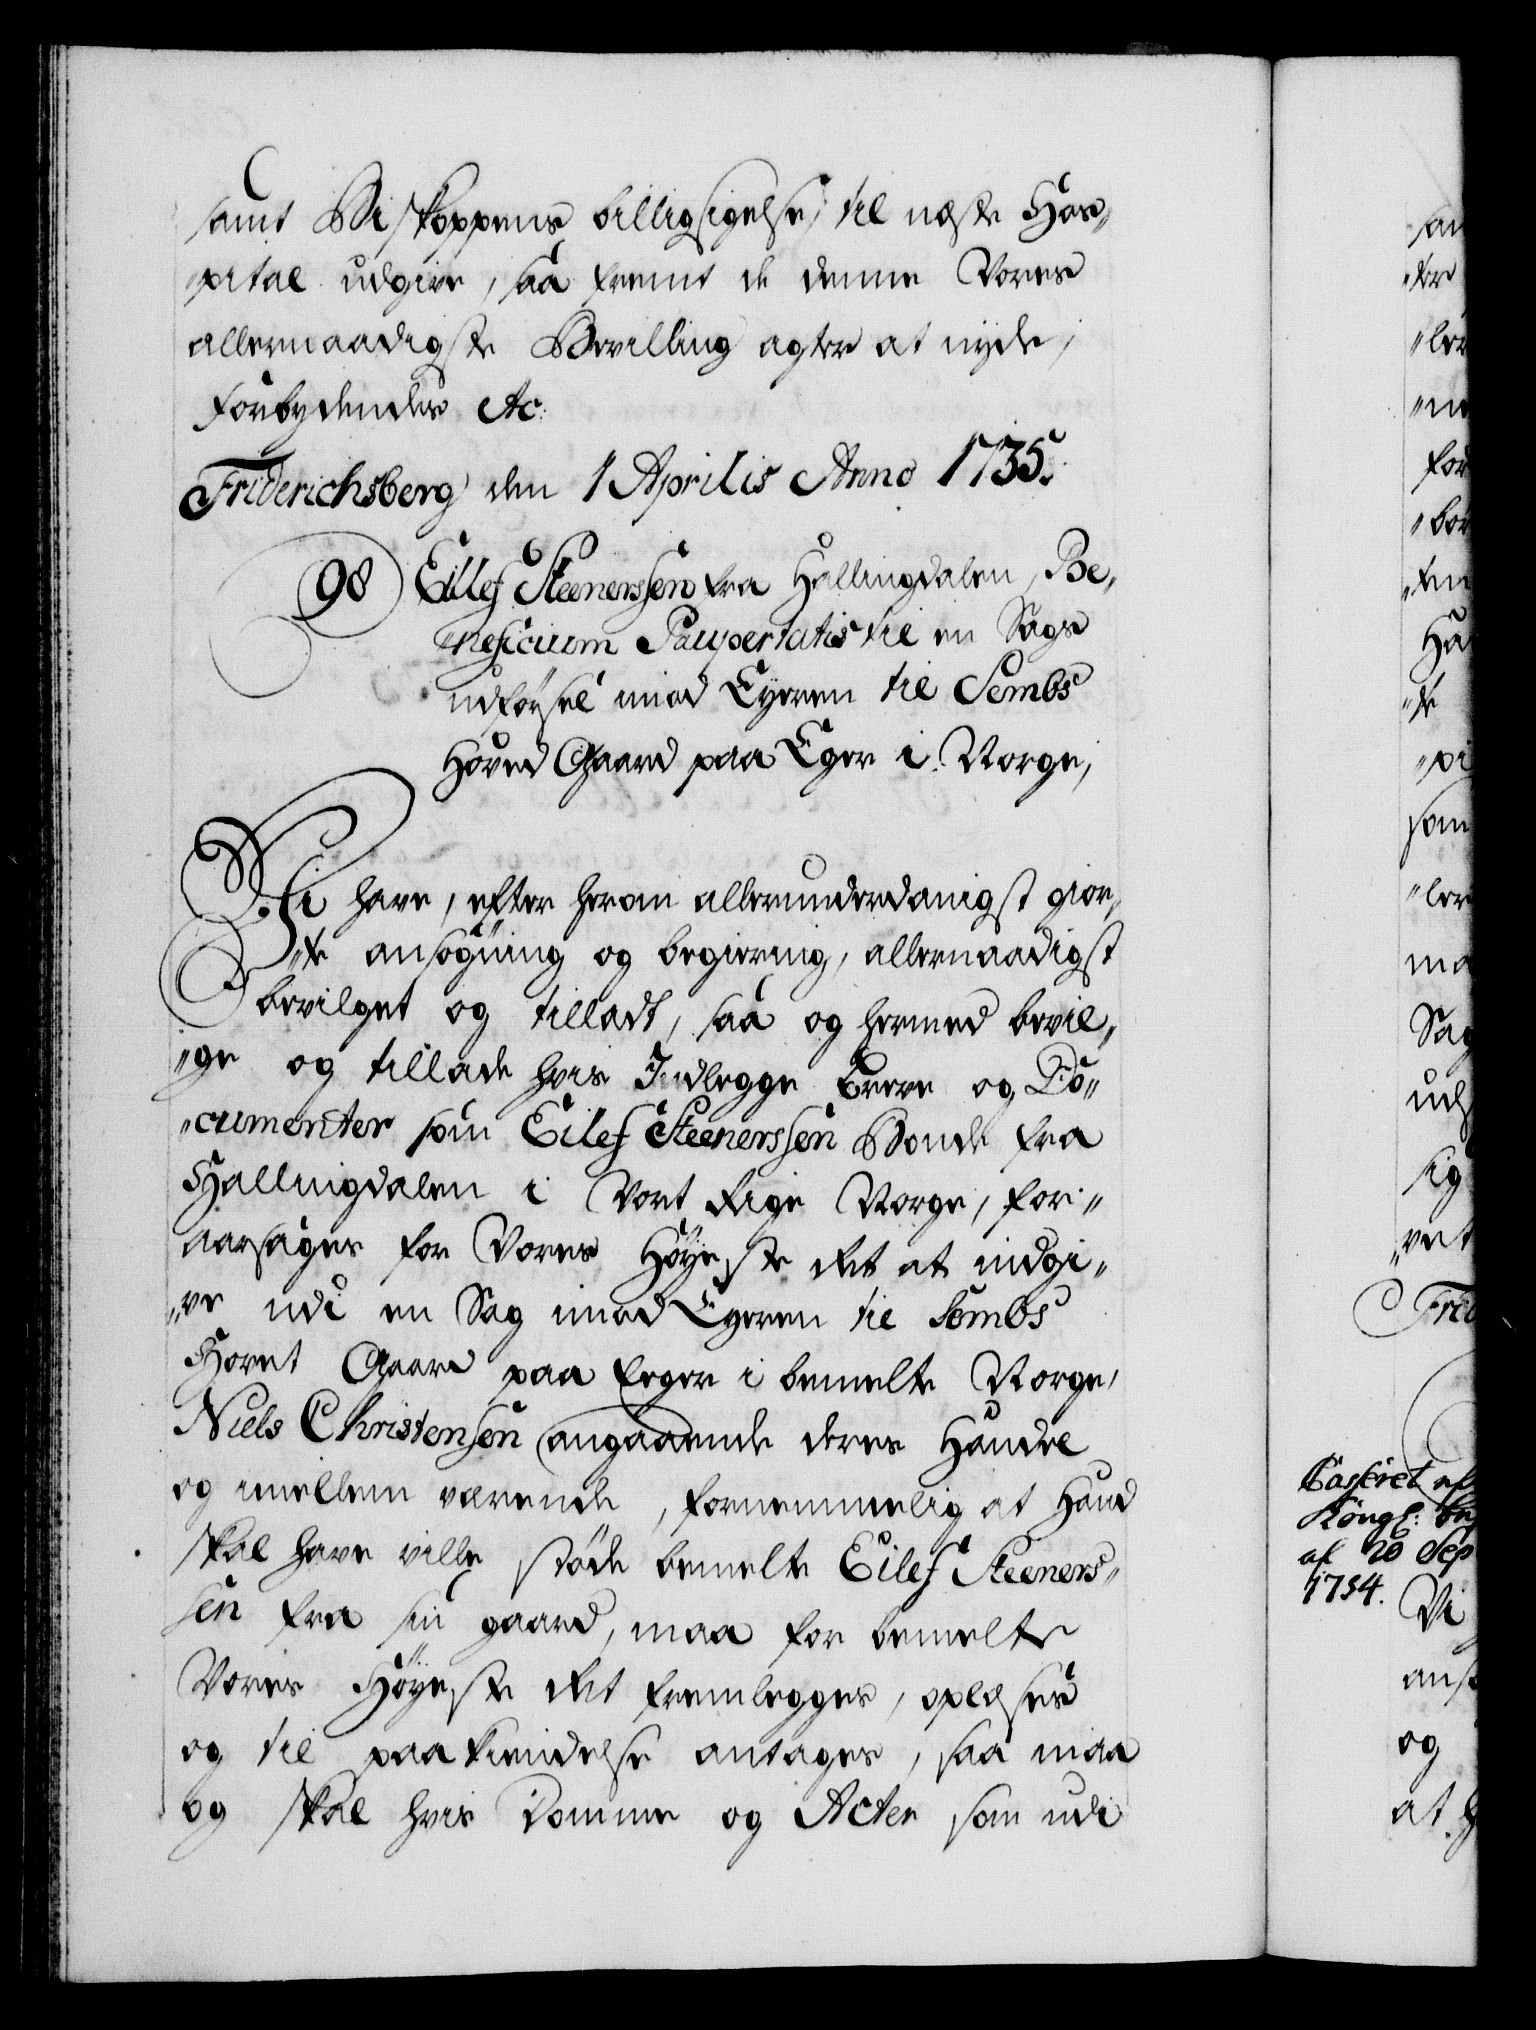 samt Biskoppens billigsigelse, til neste Hos„
„pital udgive, saa fremt de denne Vores
allernaadigste Bevilling agter at nyde,
forbydendes Ac:
Friderichsberg den 1 Aprilis Anno 1735.
98 Eilef Steenerssen fra Hallingdalen, Be„
„neficium Paupertatis til en Sags
udførsel imod Eyeren til Sembs
Hoved Gaard paa Eger i Norge,
Vi have, efter herom allerunderdanigst gior„
„te ansøgning og begiering, allernaadigst
bevilget og tilladt, saa og hermed bevil„
„ge og tillade hvis Indlegge Breve og Do„
„cumenter som Eilef Steenerssen Bonde fra
Hallingdalen i Vort Rige Norge, for„
aarsages for Vores Høyeste Ret at indgi„
„ve udi en Sag imod Eyeren til Sembs
Hovet Gaard paa Eeger i bemelte Norge,
Niels Christensen angaaende deres Handel
og imellem værende, fornemmelig at Hand
skal have ville støde bemelte Eilef Steeners„
sen fra sin gaard, maa for bemelte
Vores Høyeste Ret fremlegges, oplæses
og til paakiendelse antages, saa maa
og skal hvis Domme og Acter som udi
Casseret ef
Kongl: be
af 20 Sep
1734.
Vi
og
at